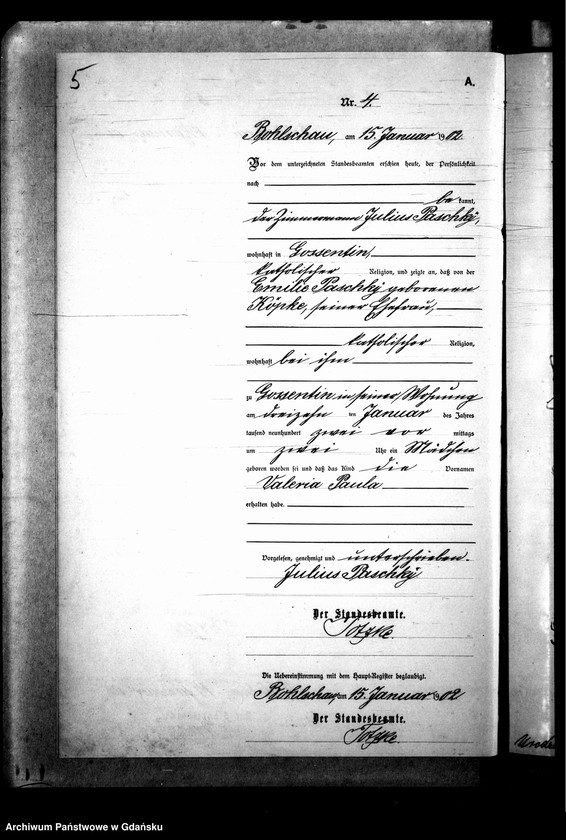 5
A.
Nr. 4.
Bohlschau, am 15. Januar 1902
Vor dem unterzeichneten Standesbeamten erschien heute, der Persönlichkeit
nach
bekannt,
der Zimmermann Julius Paschky,
wohnhaft in Gossentin,
katholischer Religion, und zeigte an, daß von der
Emilie Paschky geborenen
Köpke, seiner Ehefrau,
katholischer Religion,
wohnhaft bei ihm
zu Gossentin in seiner Wohnung
am dreizehn ten Januar des Jahres
tausend neunhundert zwei vor mittags
um zwei Uhr ein Mädchen
geboren worden sei und daß das Kind die Vornamen
Valeria Paula
erhalten habe.
Vorgelesen, genehmigt und unterschrieben.
Julius Paschky
Der Standesbeamte.
Totzke.
Die Uebereinstimmung mit dem Haupt-Register beglaubigt.
Bohlschau, am 15. Januar 1902
Der Standesbeamte.
Totzke.
Archiwum Państwowe w Gdańsku